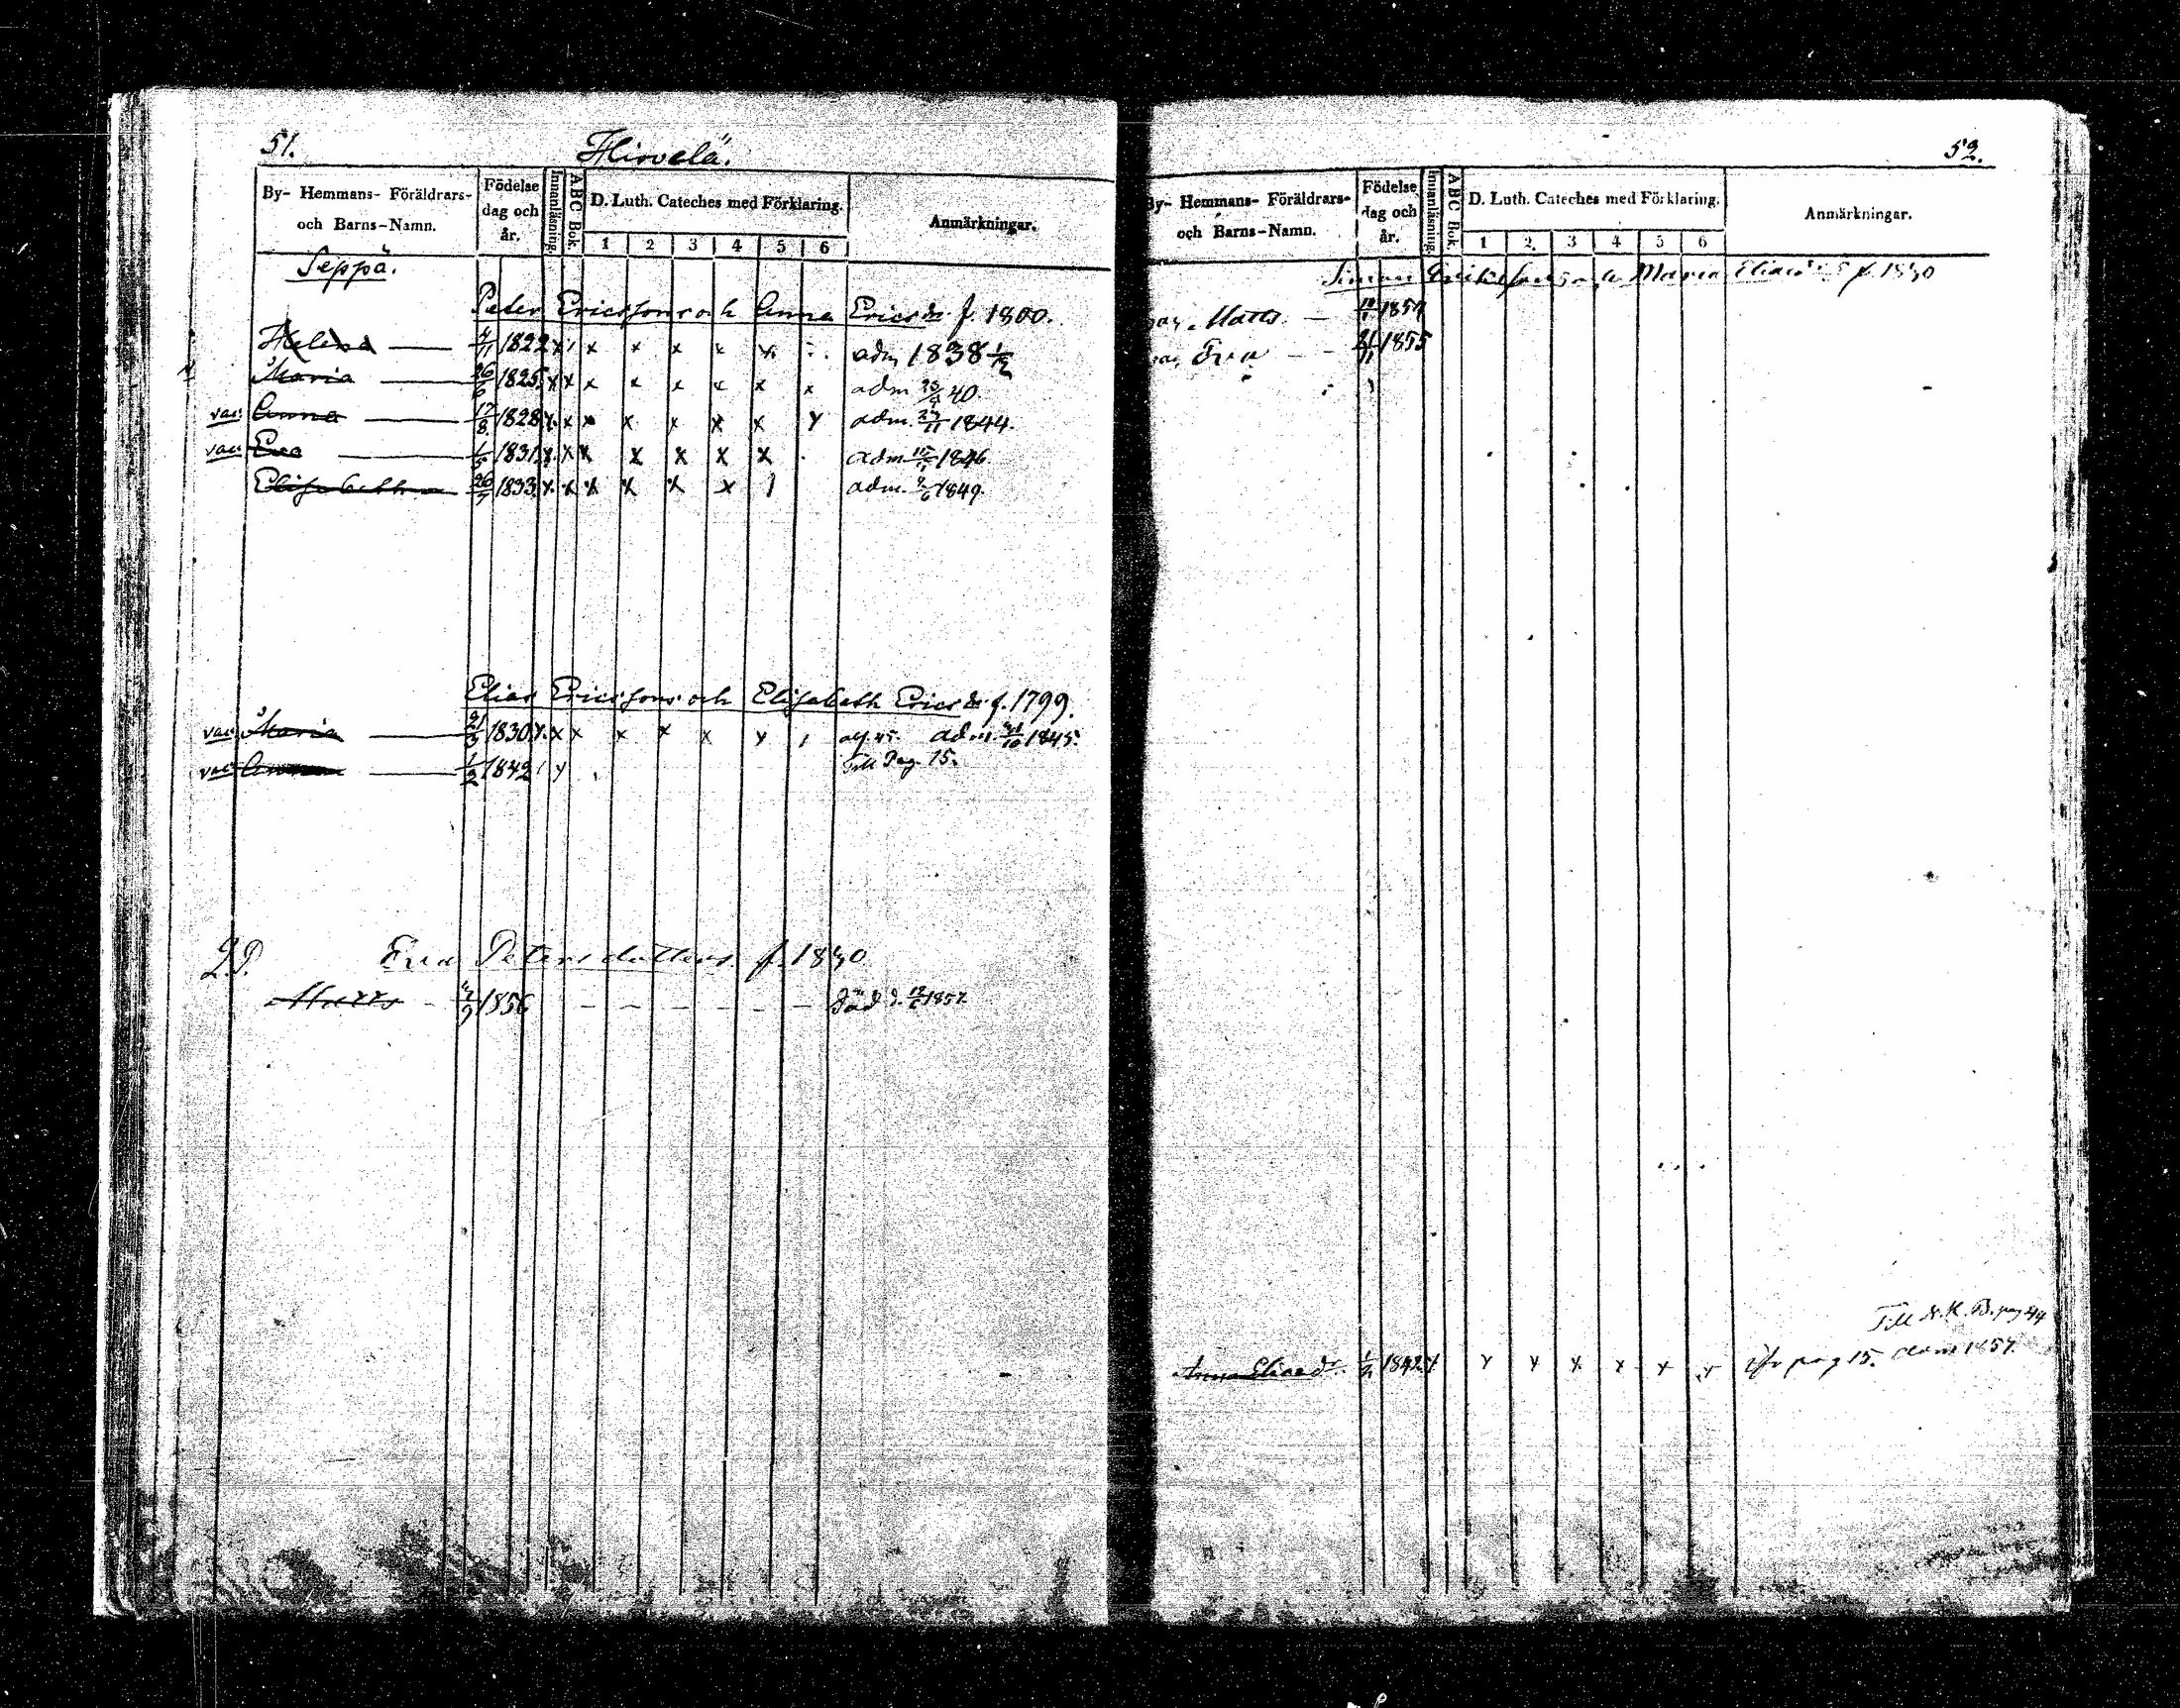 51.
Hirvelä.
By- Hemmans- Föräldrars- och Barns-Namn.
Födelse dag och år.
Innanläsning.
ABC Bok.
D. Luth. Cateches med Förklaring.
1 2 3 4 5 6
Anmärkningar.
Seppä.
Peter Ericssons och Anna Ericsdr f. 1800.
Helena 4/11 1822 x x x x x adm 1838
Maria 26/6 1825 x x x x x x x x adm 40.
vac. Anna 17/8 1828 x x x x x x x x adm. 24/11 1844.
vac. Eva 1/5 1831 x x x x x x x adm 1846
Elisabeth 26/7 1833 x x x x x x adm. 1849.
Elias Ericssons och Elisabeth Ericsdr f. 1799.
vac. Maria 21/3 1830 x x x x x x x adm. 1845.
vac. Anna 1/2 1842 Till Pag. 15.
Eva Petersdotters f. 1830
Matts 1856 Död d. 1857
52.
By- Hemmans- Föräldrars- och Barns-Namn.
Födelse dag och år.
Innanläsning.
ABC Bok.
D. Luth. Cateches med Förklaring.
1 2 3 4 5 6
Anmärkningar.
Simon Erikssons o Maria f. 1830
Matts 1854
Eva 1855
Till N.K.B. pag 44
Anna Eliaedr. 1/2 1842 x x x x x x pag 15. 1857.